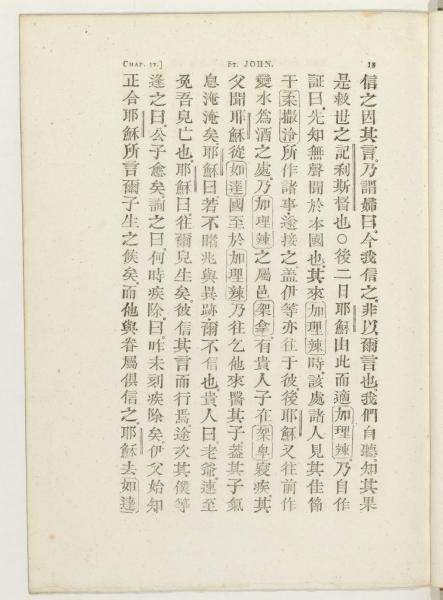 CHAP. IV.]
ST. JOHN.
13
信之因其言乃謂婦曰今我信之非以爾言也我們自聽知其果
是救世之記利斯督也○後二日耶穌由此而適加理辣乃自作
証曰先知無聲聞於本國也其來加理辣時該處諸人見其在節
于柔撒冷所作諸事遂接之蓋伊等亦往于彼後耶穌又往前作
變水為酒之處乃加理辣之屬邑架拿有貴人子在架卑寢疾其
父聞耶穌從如達國至於加理辣乃往乞他來醫其子蓋其子氣
息淹淹矣耶穌曰若不瞻兆與異跡爾不信也貴人曰老爺速至
免吾兒亡也耶穌曰往爾兒生矣彼信其言而行焉途次其僕等
逢之曰公子愈矣詢之曰何時疾除曰昨未刻疾除矣伊父始知
正合耶穌所言爾子生之候矣而他與眷屬俱信之耶穌去如達